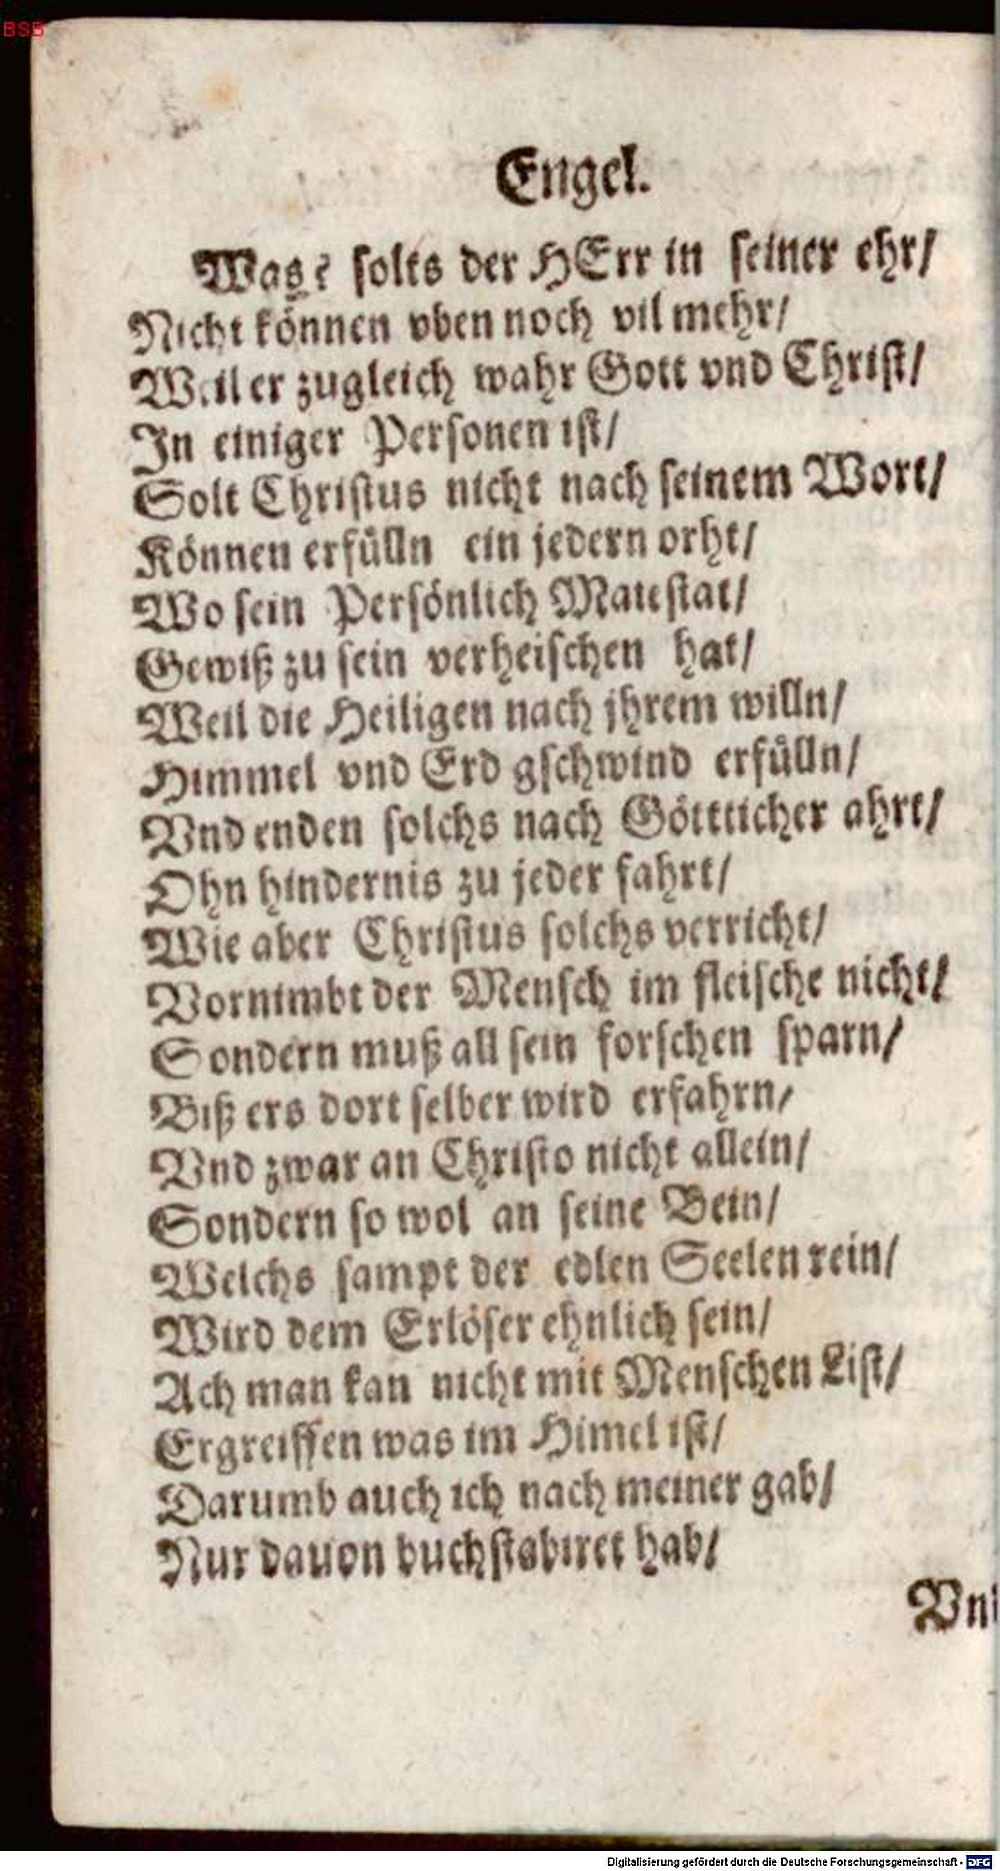 BSB
Engel.
Was? solts der HErr in seiner ehr/
Nicht können vben noch vil mehr/
Weil er zugleich wahr Gott vnd Christ/
In einiger Personen ist/
Solt Christus nicht nach seinem Wort/
Können erfülln ein jedern orht/
Wo sein Persönlich Maiestat/
Gewiß zu sein verheischen hat/
Weil die Heiligen nach jhrem willn/
Himmel vnd Erd gschwind erfülln/
Vnd enden solchs nach Göttlicher ahrt/
Ohn hindernis zu jeder fahrt/
Wie aber Christus solchs verricht/
Vornimbt der Mensch im fleische nicht/
Sondern muß all sein forschen sparn/
Biß ers dort selber wird erfahrn/
Vnd zwar an Christo nicht allein/
Sondern so wol an seine Bein/
Welchs sampt der edlen Seelen rein/
Wird dem Erlöser ehnlich sein/
Ach man kan nicht mit Menschen List/
Ergreiffen was im Himel ist/
Darumb auch ich nach meiner gab/
Nur dauon buchstabiret hab/
Vni
Digitalisierung gefördert durch die Deutsche Forschungsgemeinschaft - DFG